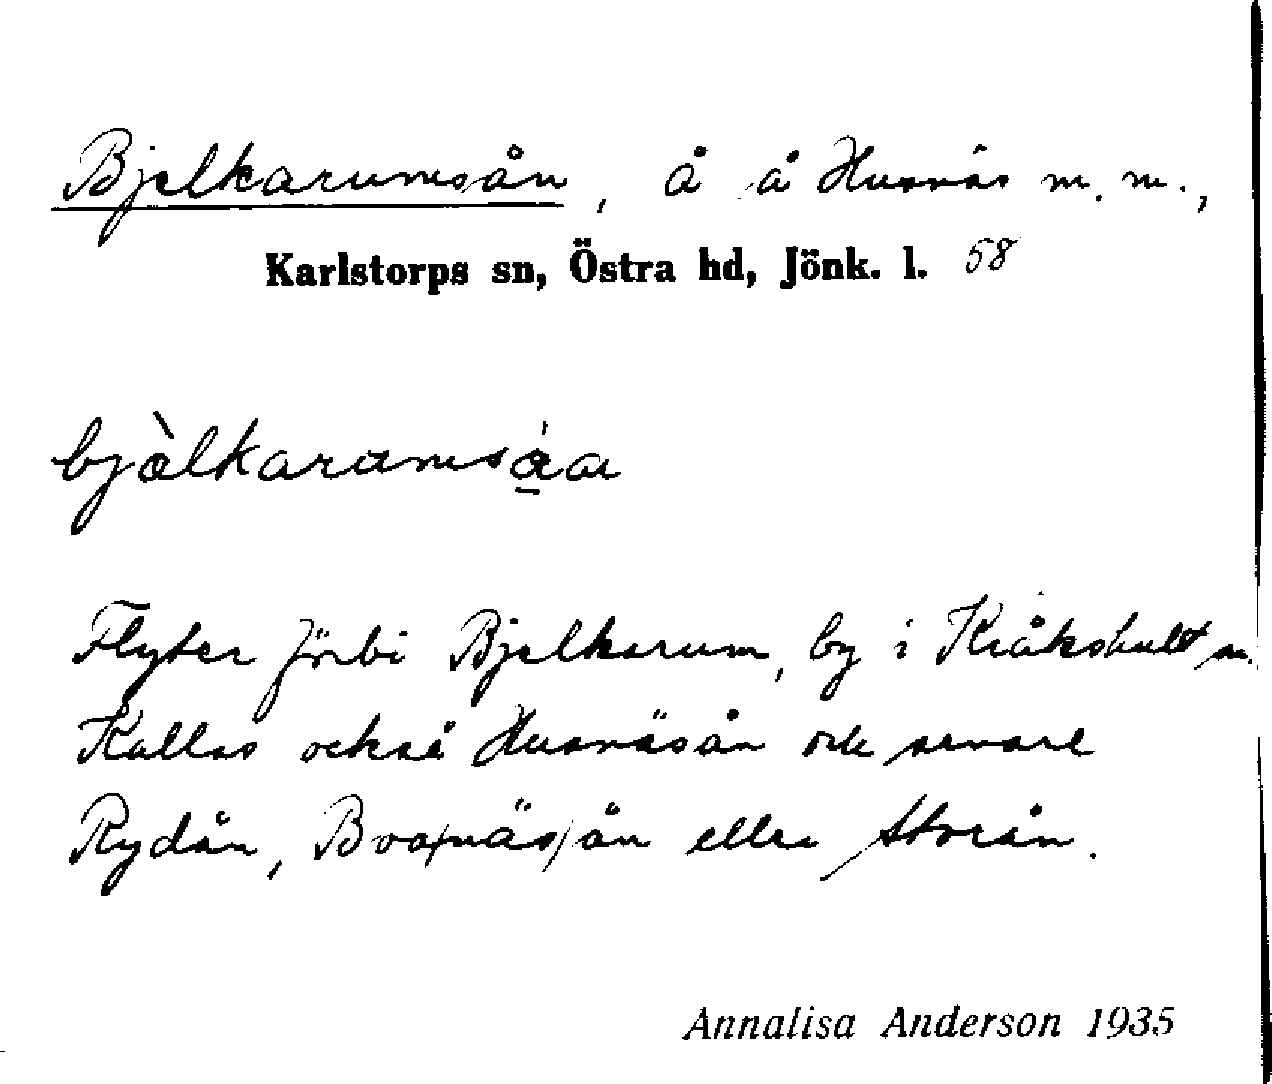 Bjelkarumsån, å å Husnäs m. m.,
Karlstorps sn, Östra hd, Jönk. l. 58
bjälkarumsåa
Flyter förbi Bjelkarum, by i Kråkshult sn.
Kallas också Husnäsån och senare
Rydån, Boa(näs)ån eller Storån.
Annalisa Anderson 1935